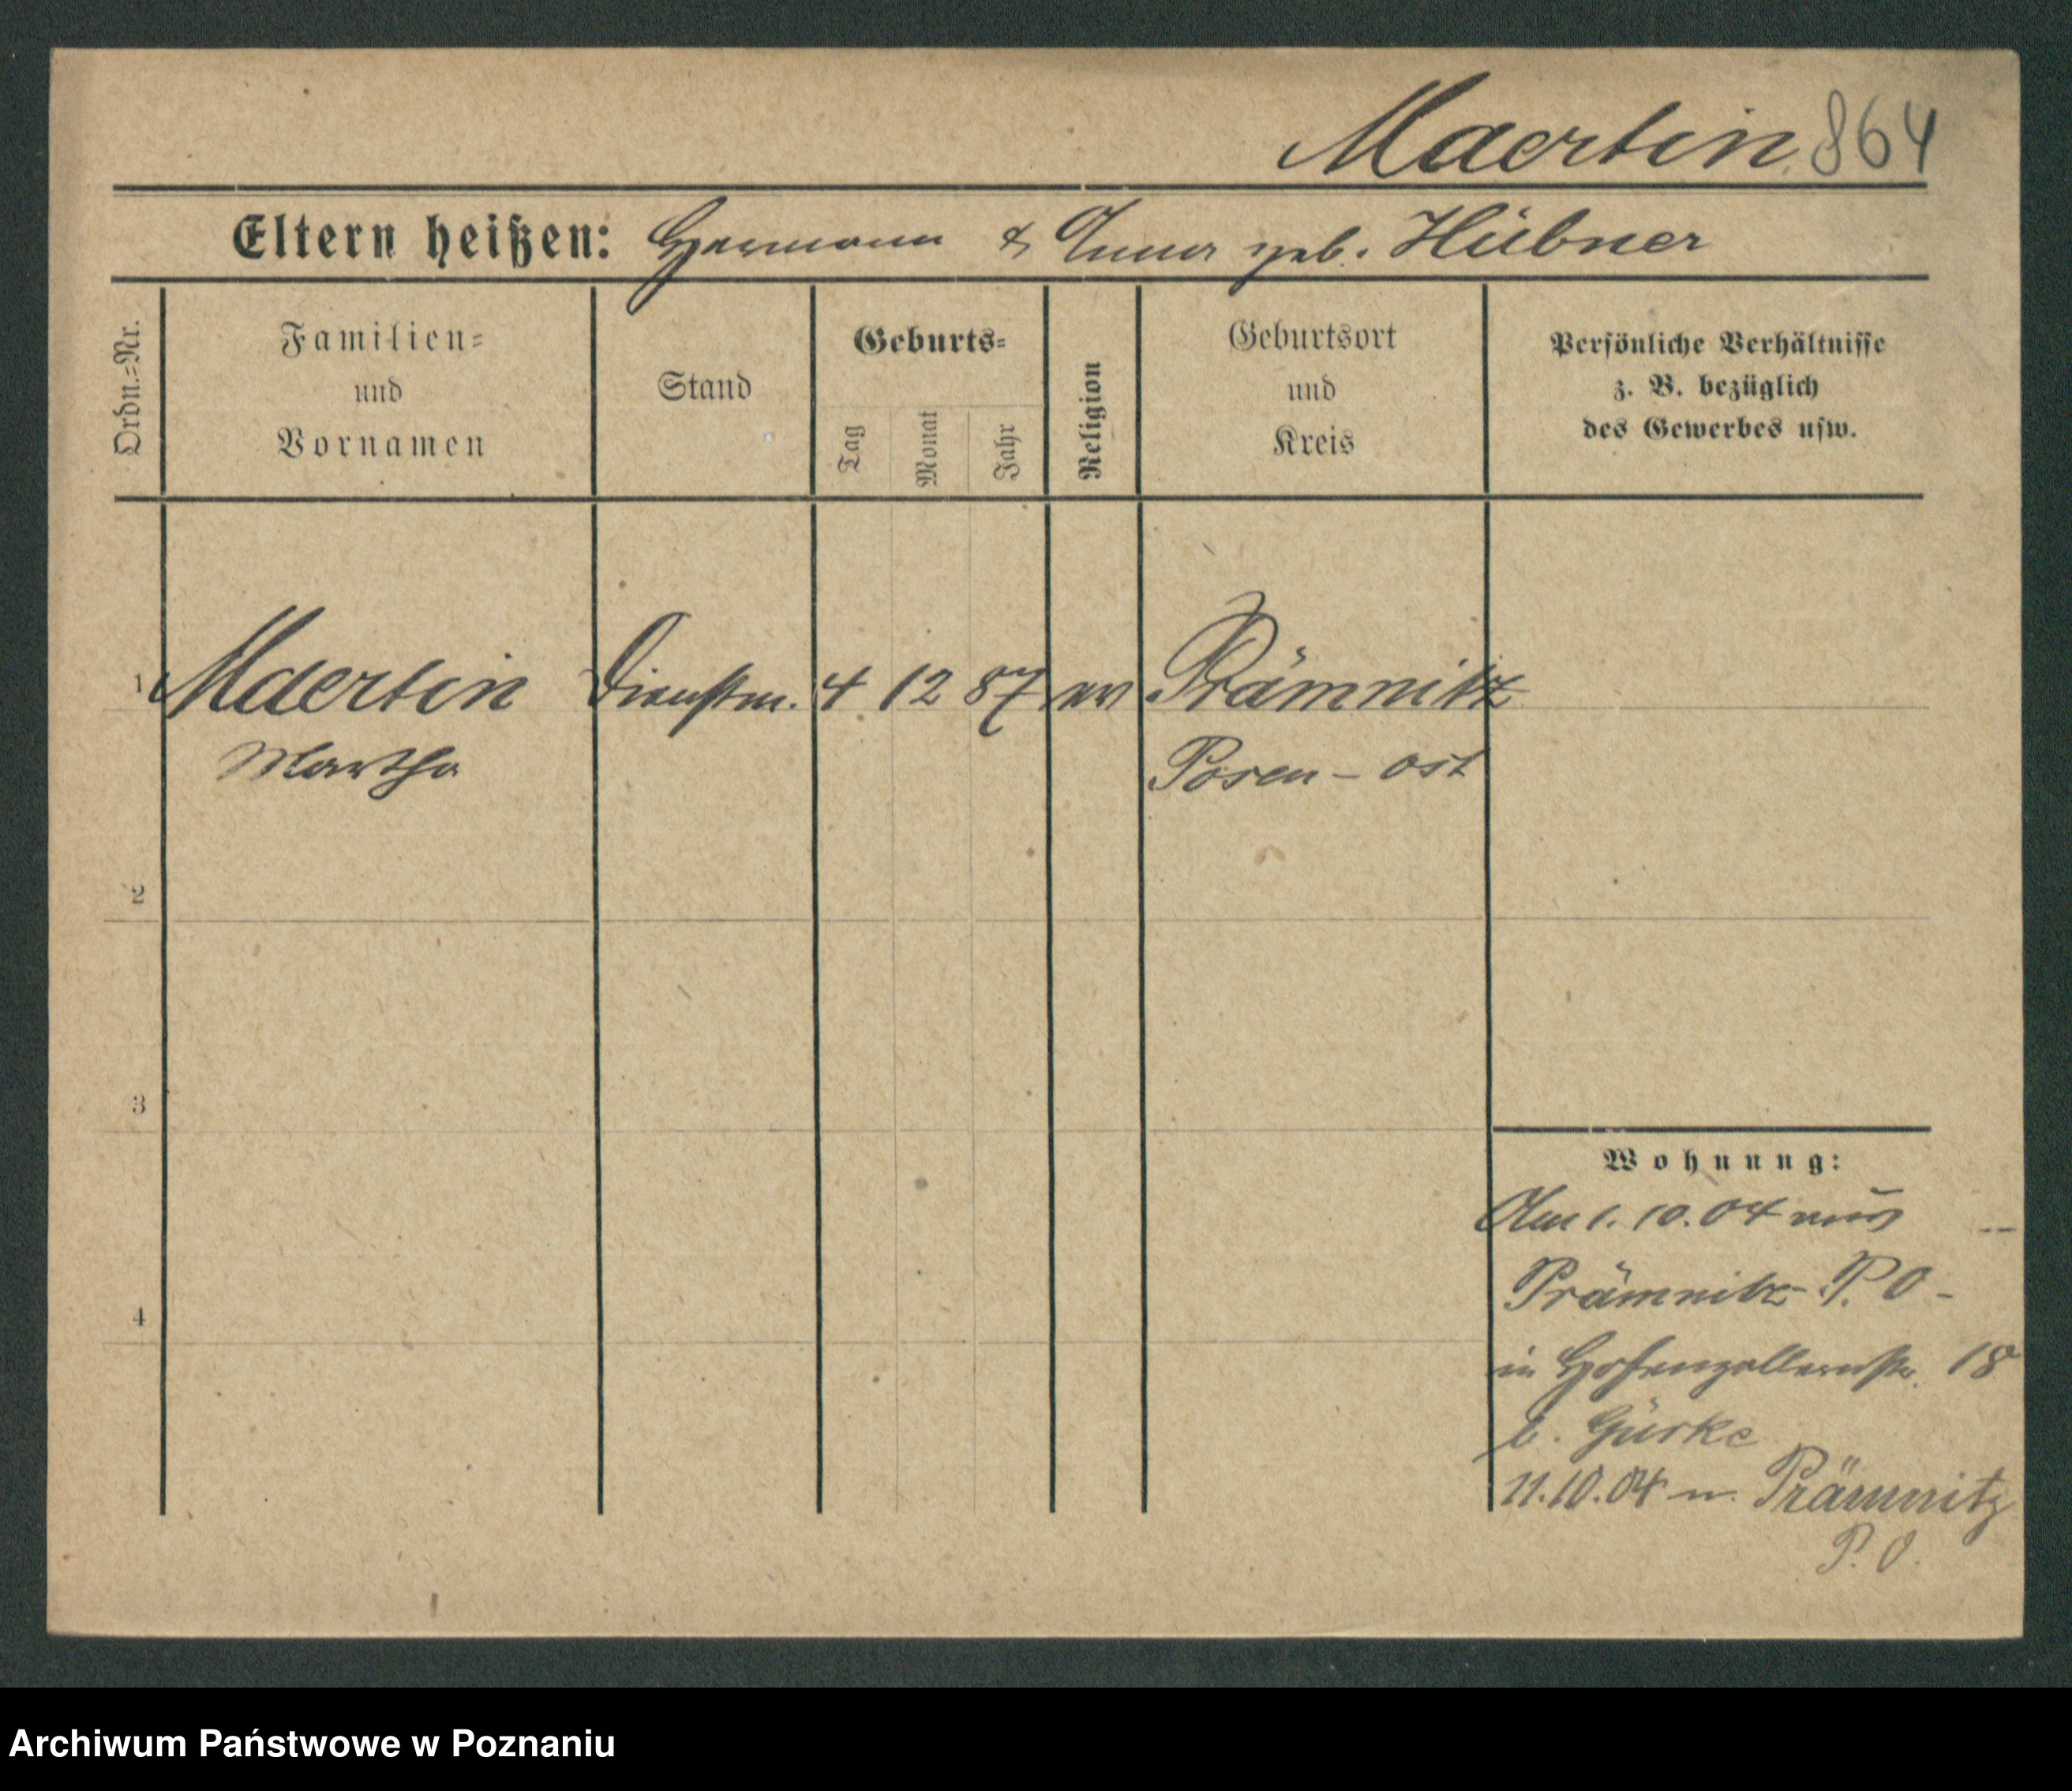 Maertin 864
Eltern heißen: Hermann & Anna geb. Hübner
Ordn.=Nr.
Familien=
und
Vornamen
Stand
Geburts=
Tag
Monat
Jahr
Religion
Geburtsort
und
Kreis
Persönliche Verhältnisse
z. B. bezüglich
des Gewerbes usw.
1 Maertin Dienstm. 4 12 87 ev Prämnitz
Martha Posen - ost
2
3
4
Wohnung:
Am 1. 10. 04 aus
Prämnitz P. O -
in Hohenzollernstr. 18
b. Gürke
11.10.04 n. Prämnitz
P. O.
Archiwum Państwowe w Poznaniu